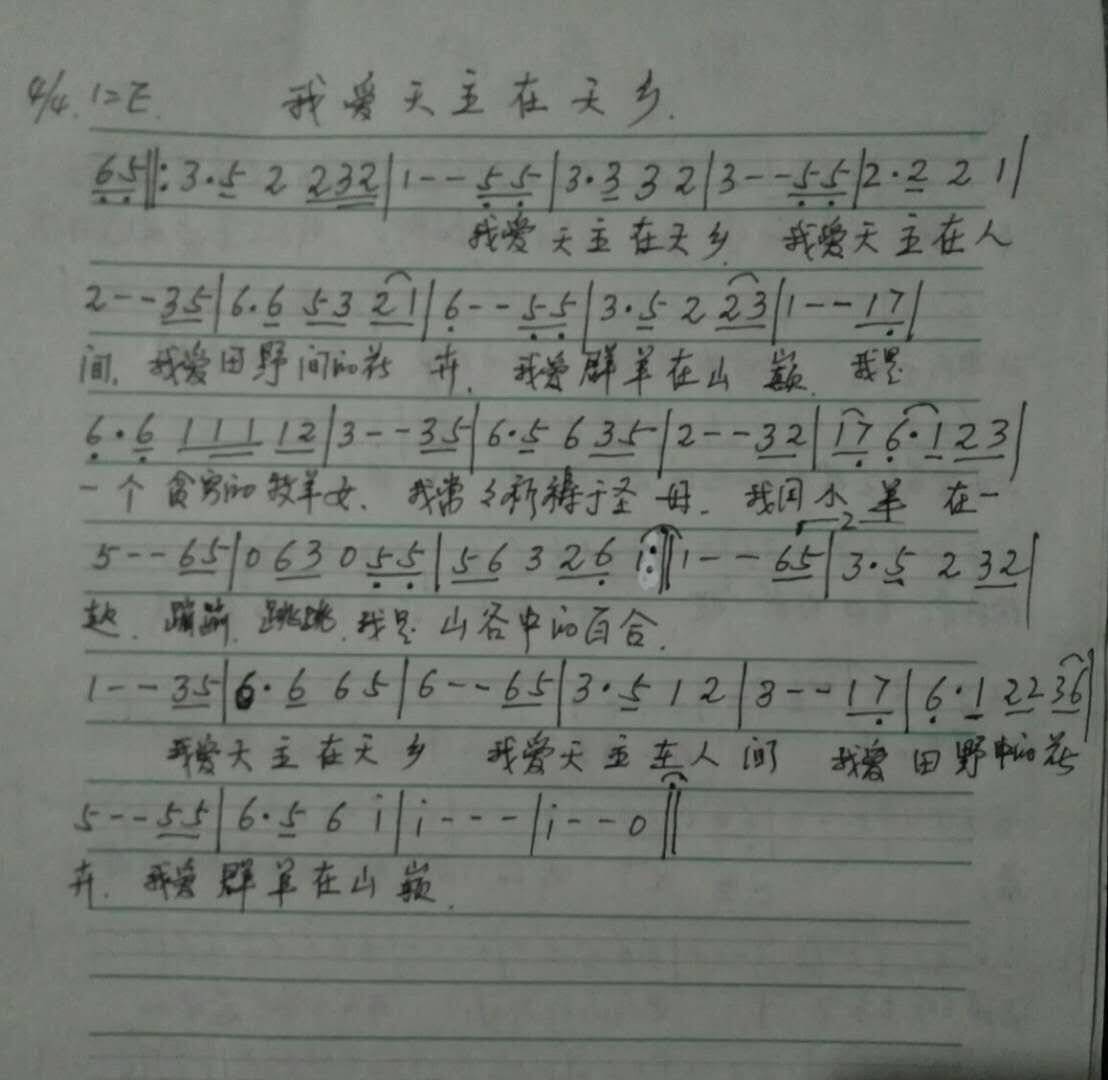 4/4. 1=E. 我爱天主在天乡.
65‖: 3·5 2 232|1--55|3·3 3 2|3--55|2·2 2 1|
我爱天主在天乡. 我爱天主在人
2--35|6·6 53 21|6--55|3·5 2 23|1--17|
间. 我爱田野间的花 卉. 我爱群羊在山 巅. 我是
6·6 111 12|3--35|6·5 6 35|2--32|17 6·1 23|
一个贪穷的牧羊女. 我常々祈祷于圣母. 我同小羊 在一
2
5--65|0 63 0 55|56 3 26 1:‖1--65|3·5 2 32|
起. 蹦蹦. 跳跳. 我是 山谷中的百合.
1--35|6·6 65|6--65|3·5 1 2|3--17|6·1 22 36|
我爱天主在天乡 我爱天主在人间 我爱田野中的花
5--55|6·5 6 i|i---|i--0‖
卉. 我爱群羊在山巅.